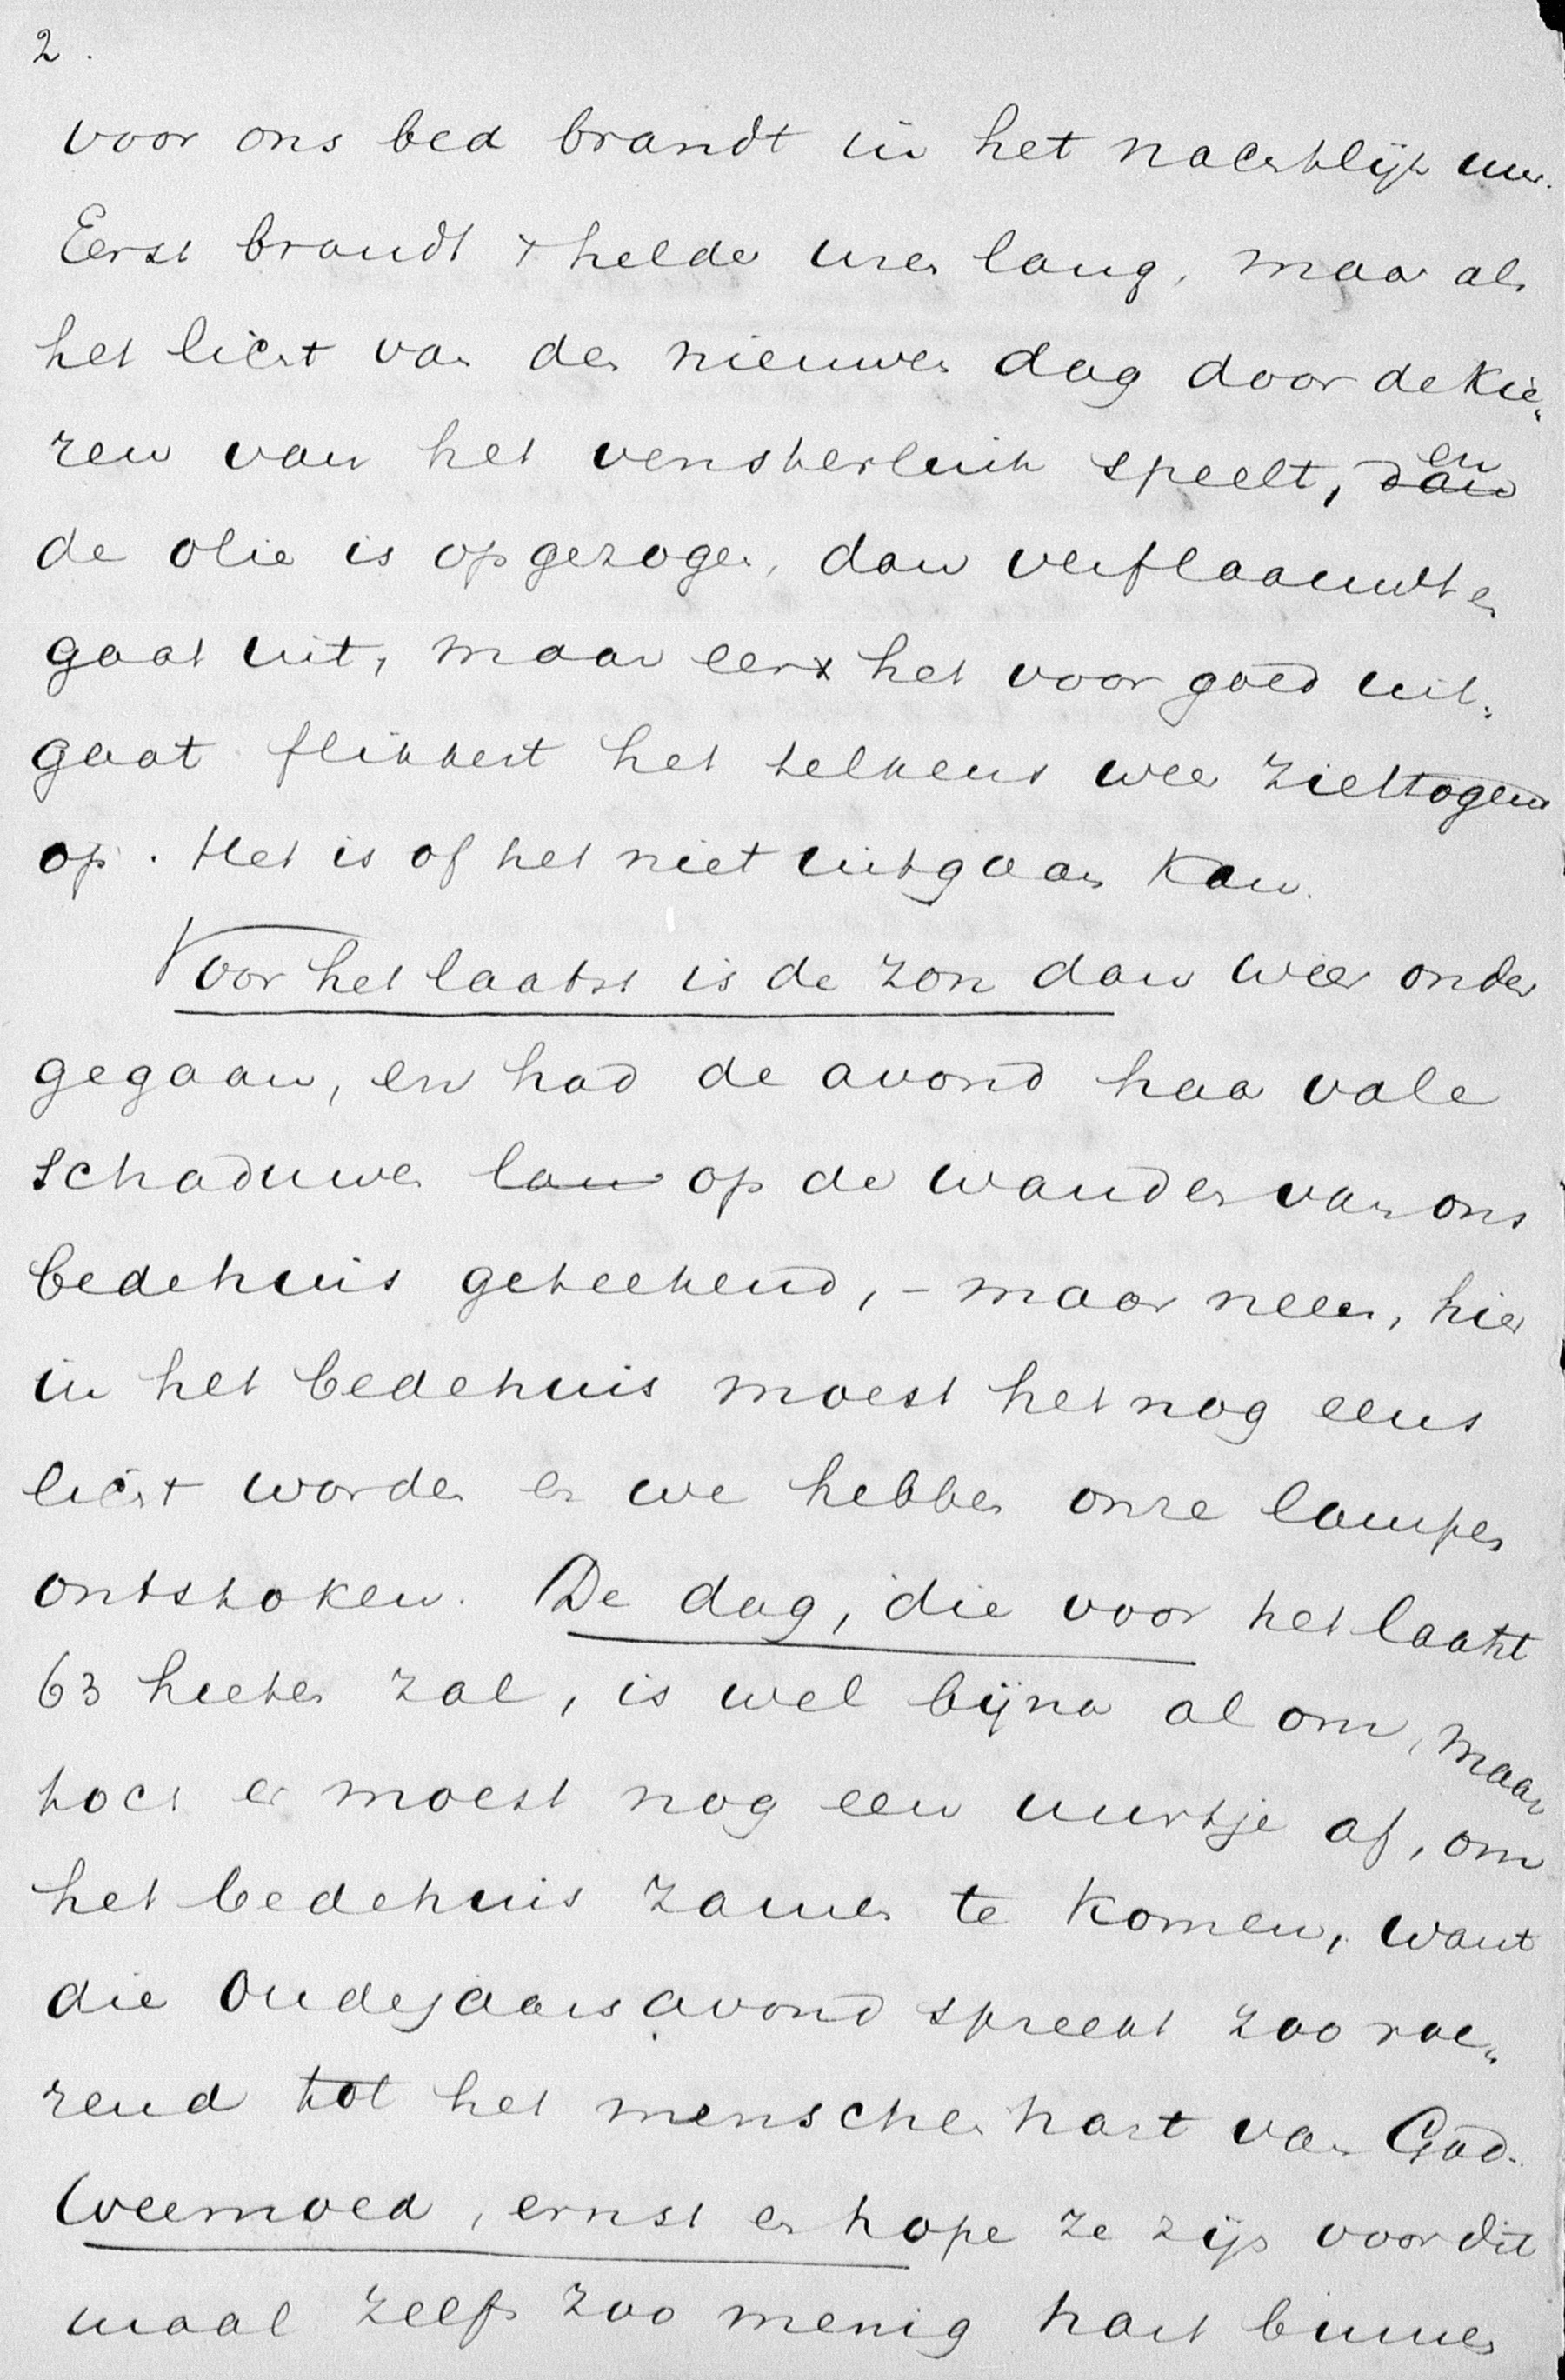 2.
voor ons bed brandt in het nachtlijk uur.
Eerst brandt t helder uren lang, maar als
het licht van den nieuwen dag door de kie„
ren van het vensterluik speelt, ~~dan~~ en
de olie is opgezogen, dan verflaauwt en
gaat uit, maar eer het voor goed uit„
gaat flikkert het telkens weer zieltogend
op. Het is of het niet uitgaan kan.
Voor het laatst is de zon dan weer onder
gegaan, en had de avond haar vale
schaduwen ~~lan~~ op de wanden van ons
bedehuis geteekend, – maar neen, hier
in het bedehuis moest het nog eens
licht worden en we hebben onze lampen
ontstoken. De dag, die voor het laatst
63 heeten zal, is wel bijna al om, maar
toch er moest nog een uurtje af, om
het bedehuis zamen te komen, want
die Oudejaarsavond spreekt zoo roe„
rend tot het menschenhart van God.
Weemoed, ernst en hope ze zijn voor dit
maal zelfs zoo menig hart binnen